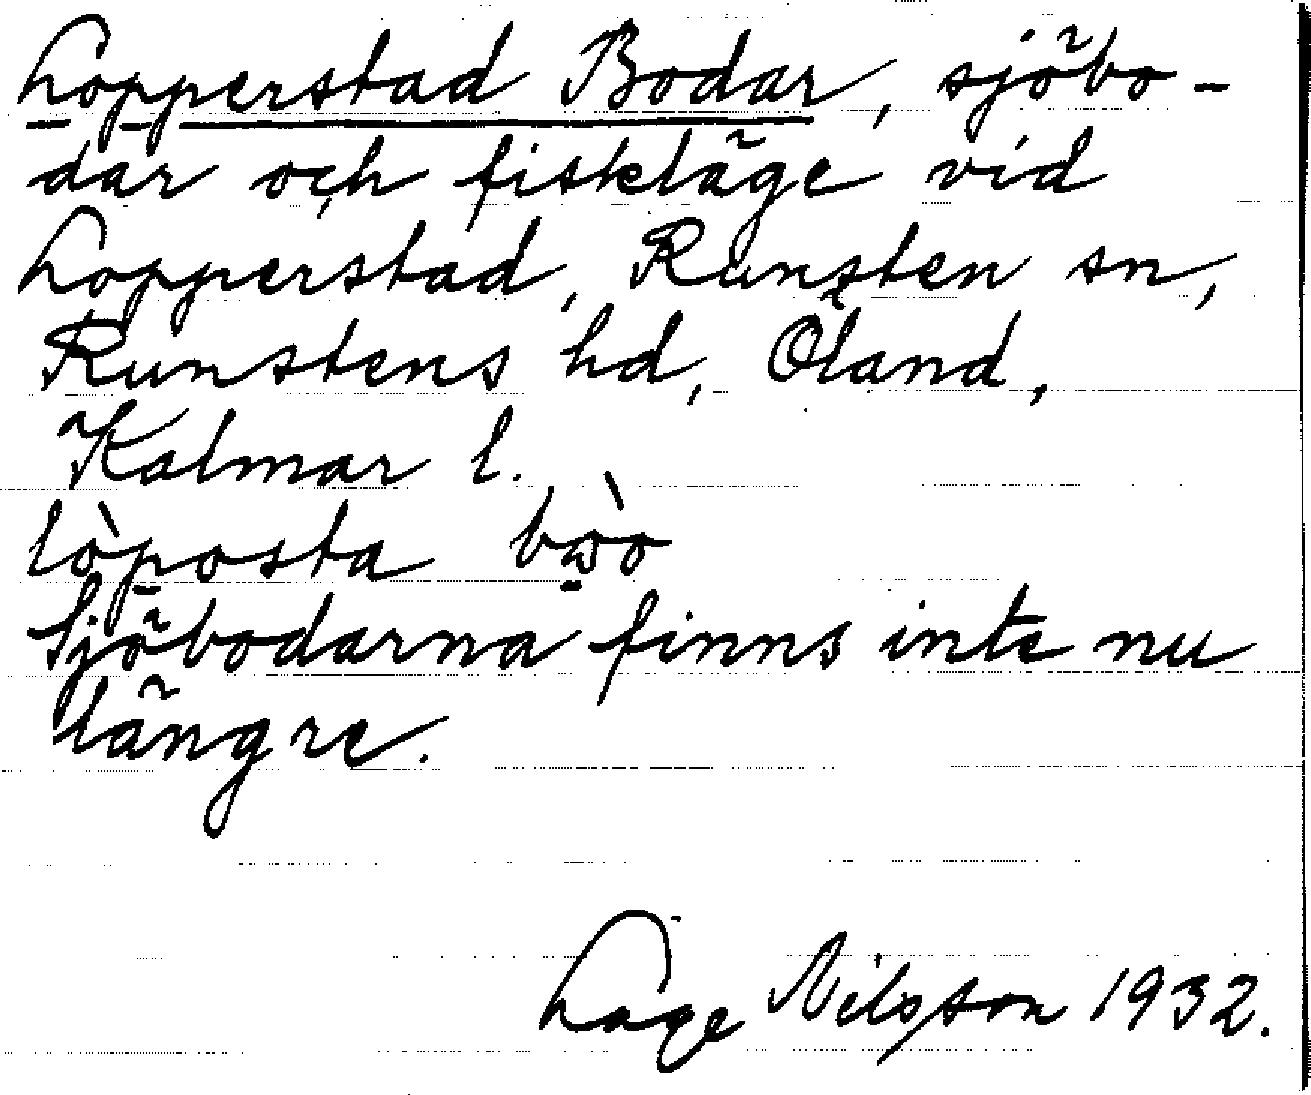 Lopperstad Bodar, sjöbo-
dar och fiskeläge vid
Lopperstad, Runsten sn,
Runstens hd, Öland,
Kalmar l.
lòposta
Sjöbodarna finns inte nu
längre.
Lage Nilsson 1932.